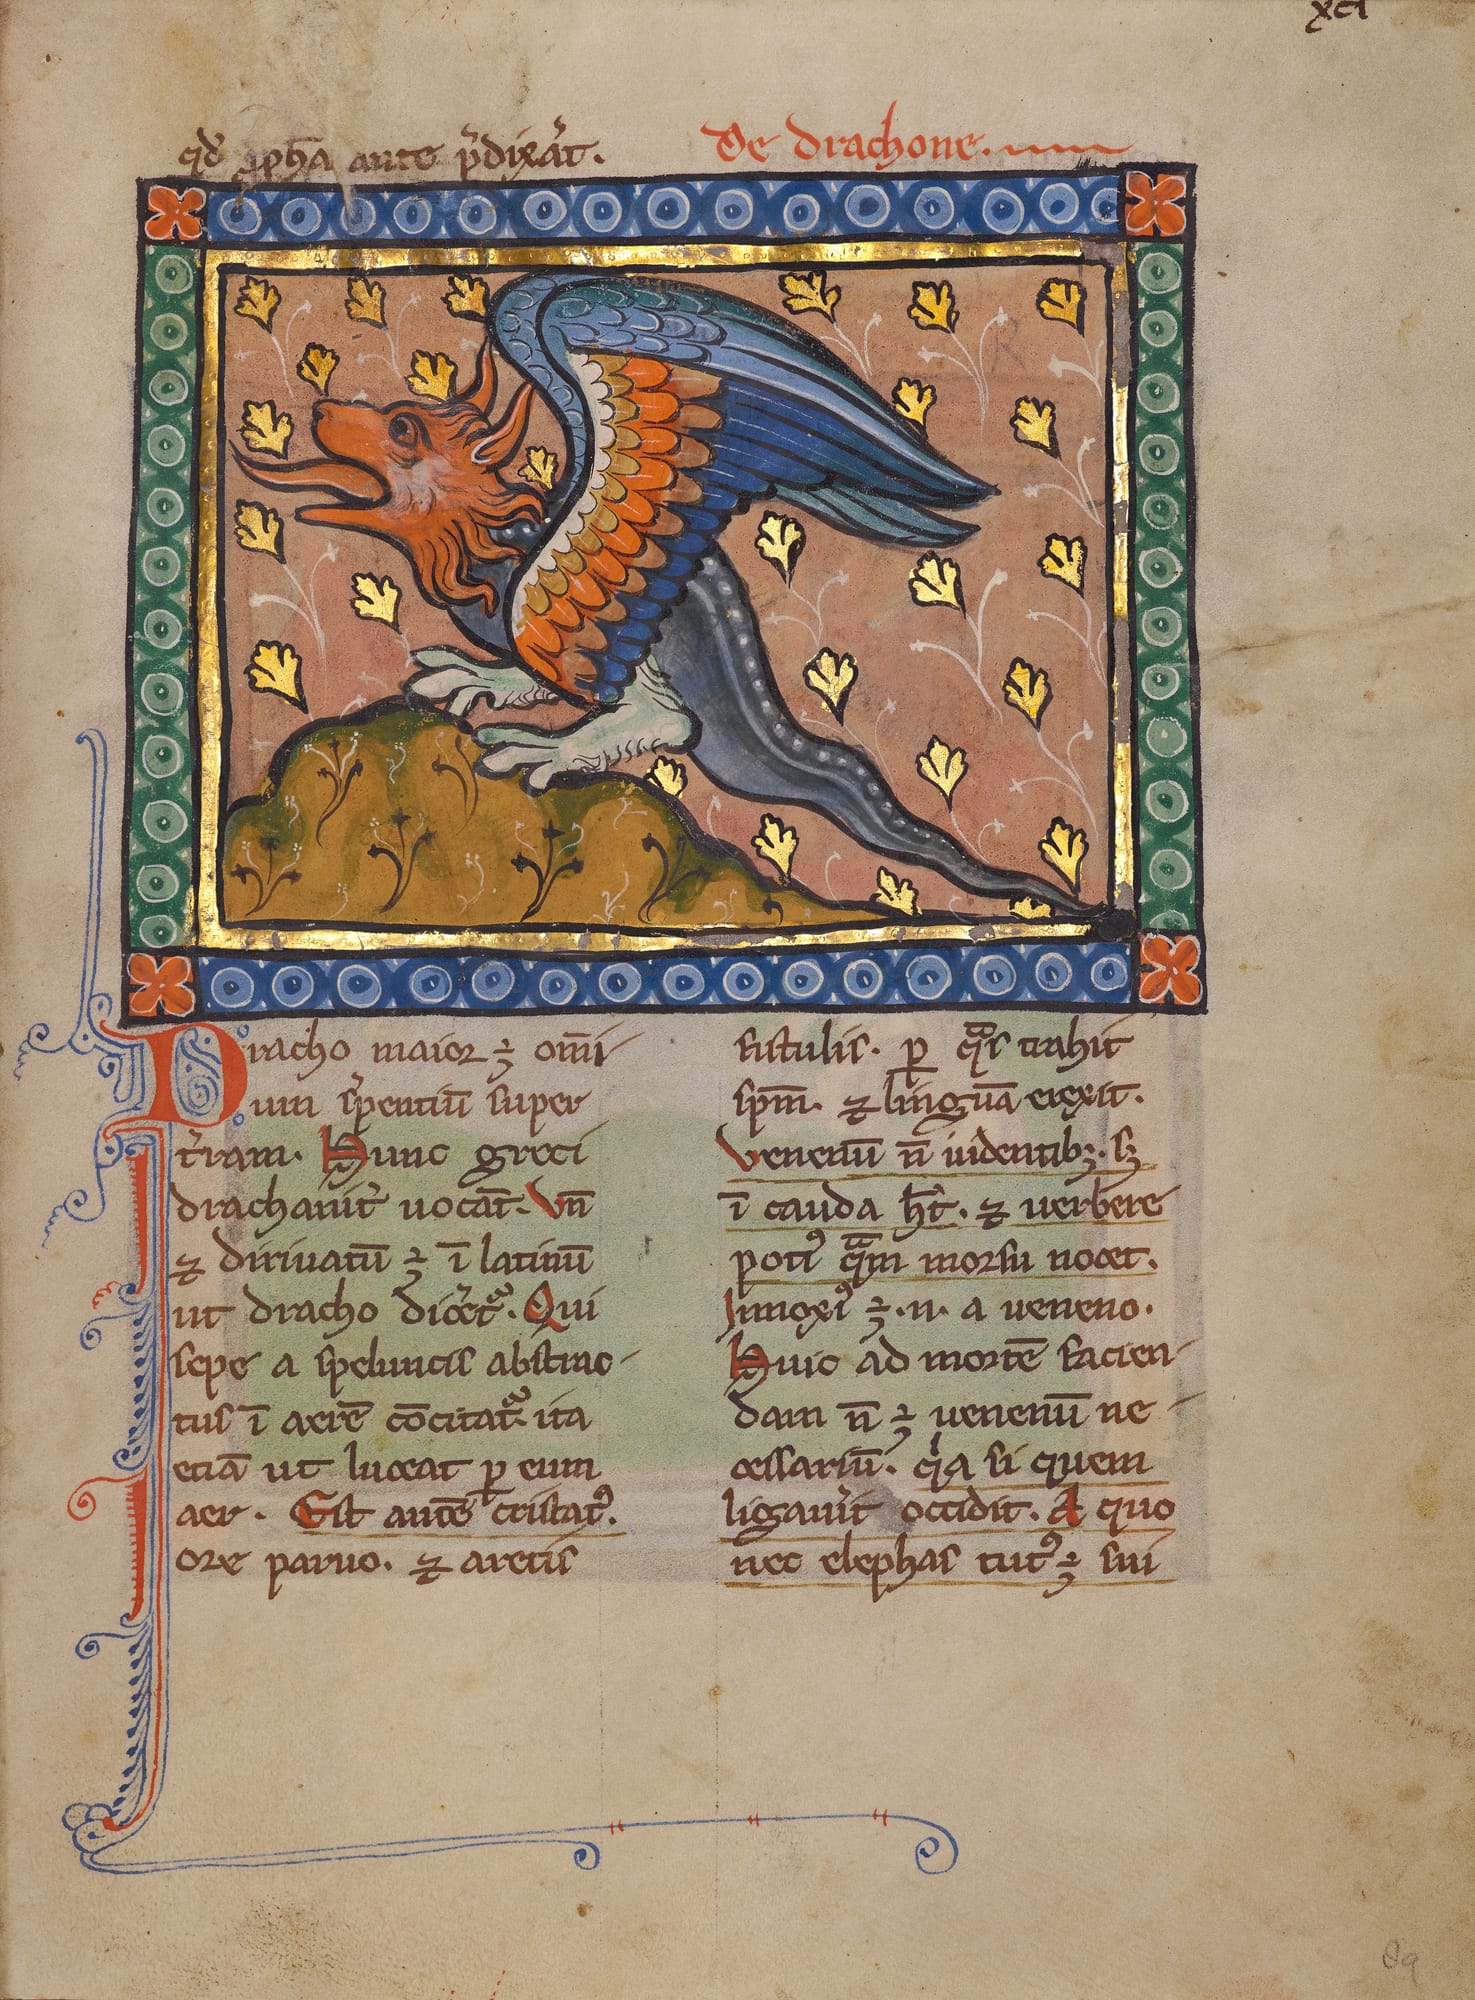 xci
qđ ꝓph̄a ante p̄dixat̄.
De drachone.
Dracho maior ÷ om̄i
um sp̄entiū super
t̄ram. Hunc greci
drachanit̄ uocāt. Vn̄
⁊ diriuatū ÷ ī latinū
ut dracho dicet̄. Qui
sepe a speluncis abstrac
tus ī aerē cōcitat̄. ita
etiā ut luceat ꝑ eum
aer. Est autē cristatꝰ.
ore paruo. ⁊ aretis
fistulis. ꝑ qͣs trahit
spm̄. ⁊ linguā erexit.
Venenū n̄ ī identibꝫ. sꝫ
ī cauda h̄t. ⁊ uerbere
potiꝰ qͣm morsu nocet.
Innoxiꝰ ÷ .n. a ueneno.
Huic ad mortē facien
dam n̄ ÷ uenenū ne
cessariū. qͥa si quem
ligauīt occidit. A quo
nec elephas tutꝰ ÷ sui
89